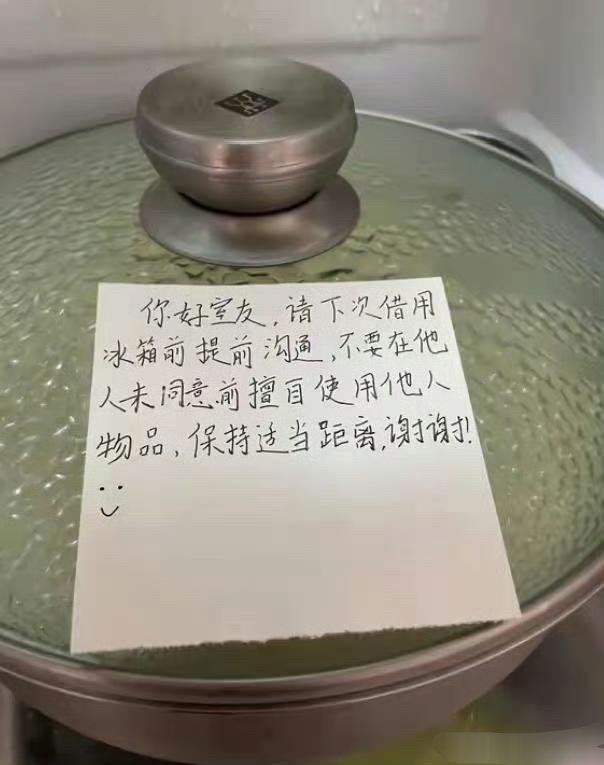 你好室友，请下次借用
冰箱前提前沟通，不要在他
人未同意前擅自使用他人
物品，保持适当距离，谢谢！